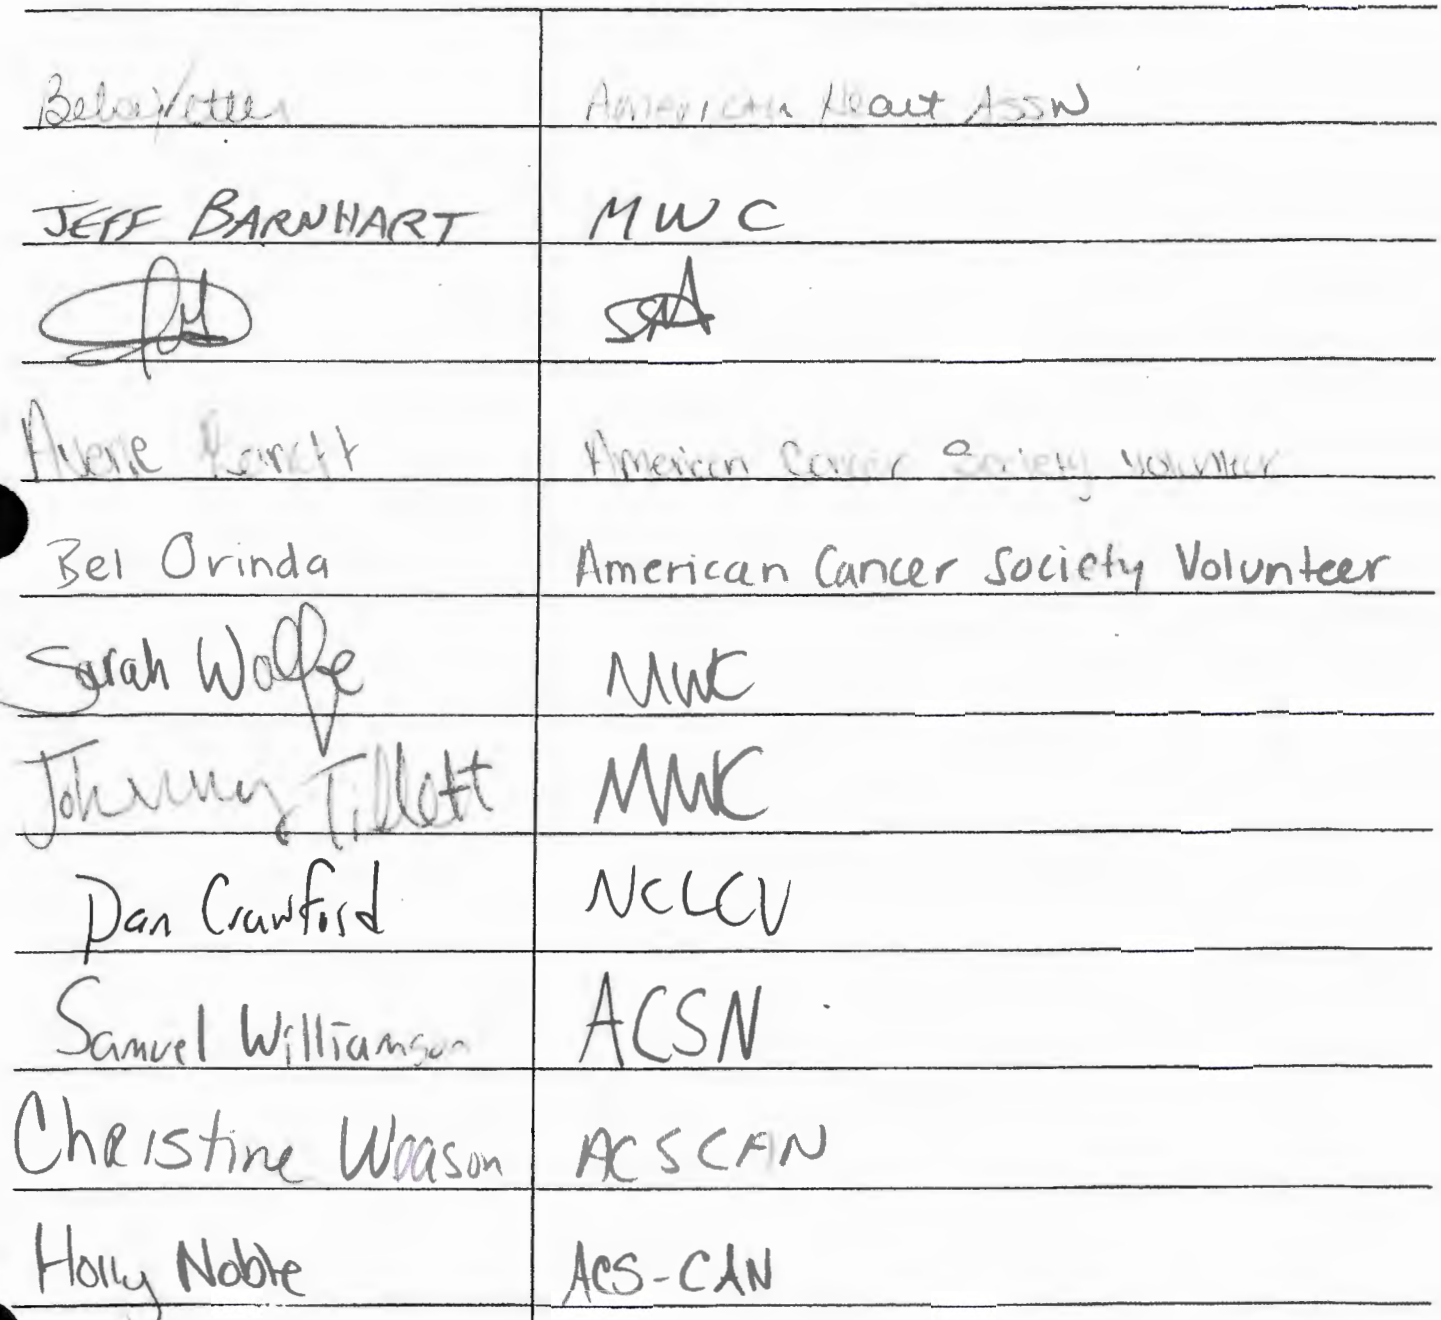 American Heart Assn
JEFF BARNHART MWC
Bel Orinda American Cancer Society Volunteer
American Cancer Society Volunteer
Sarah Wolfe MWC
Johnny Tillett MWC
Dan Crawford NCLCV
Samuel Williamson ACSN
Christine Weason ACS CAN
Holly Noble ACS-CAN